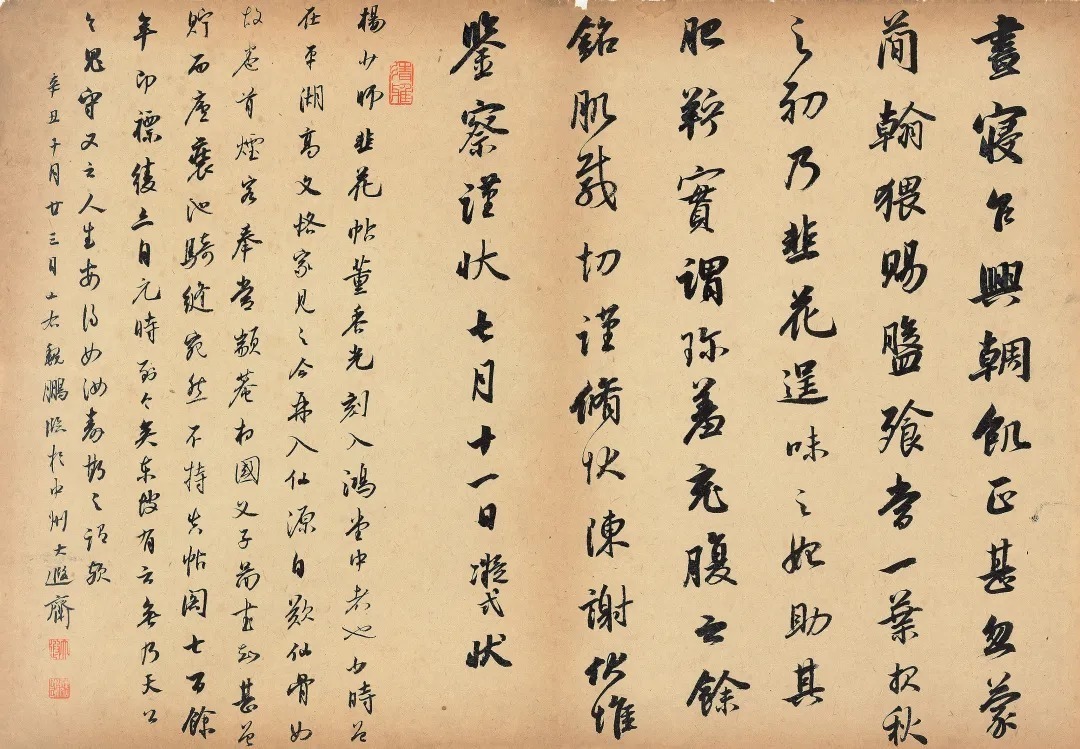 晝寢乍興朝飢正甚忽蒙
簡翰猥賜盤飧當一葉報秋
之初乃韭花逞味之始助其
肥羜實謂珍羞充腹之餘
銘肌載切謹脩狀陳謝伏惟
鑒察謹狀七月十一日凝式狀
楊少師韭花帖董香光刻入鴻堂中者也少時曾
在平湖高文恪家見之今再入仙源自歎仙骨如
故卷首煙客奉常顓菴相國父子兩書甚
貯而産襄池騎縫宛然不特其帖閱七百餘
年即褾綾亦自元時到今矣東坡有云無乃天上
之鬼守又云人生安得如汝壽斯之謂歟
辛丑子月廿三日山右魏鵬臨於中州大遯齋
清雅